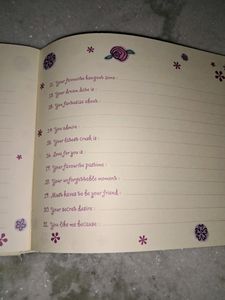 11. Your favourite hangout zone :
12. Your dream date is :
13. You fantasize about :
14. You admire :
15. Your latest crush is :
16. Love for you is :
17. Your favourite pastime :
18. Your unforgettable moment :
19. Must haves to be your friend :
20. Your secret desire :
21. You like me because :